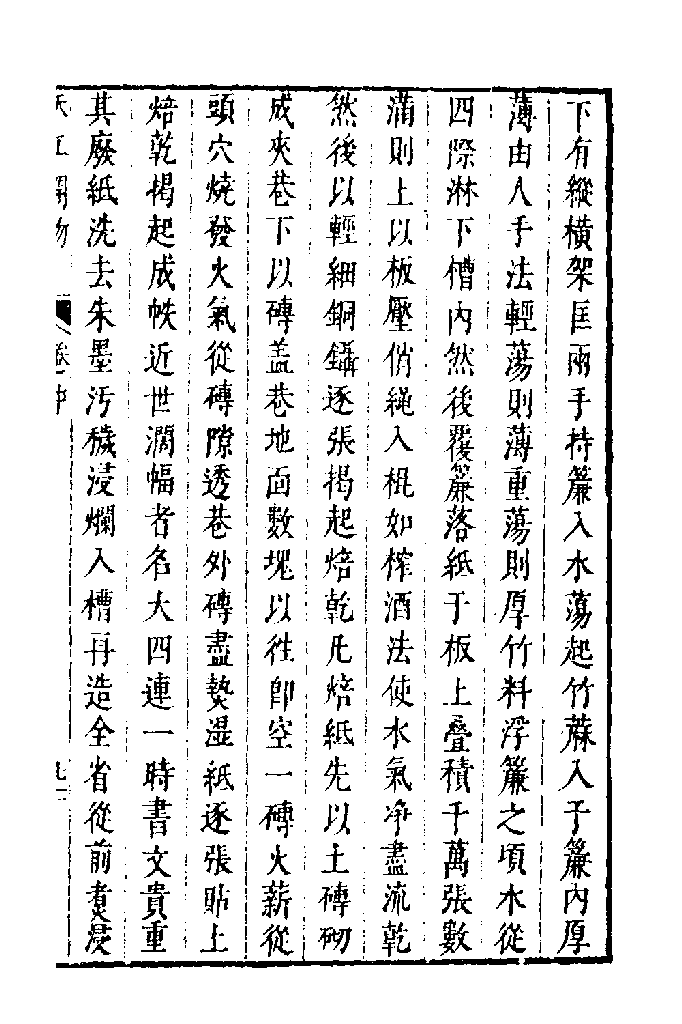 下有縱橫架匡兩手持簾入水蕩起竹蔴入于簾內厚
薄由人手法輕蕩則薄重蕩則厚竹料浮簾之頃水從
四際淋下槽內然後覆簾落紙于板上叠積千萬張數
滿則上以板壓俏繩入棍如榨酒法使水氣净盡流乾
然後以輕細銅鑷逐張揭起焙乾凡焙紙先以土磚砌
成夾巷下以磚盖巷地面數塊以徃即空一磚火薪從
頭穴燒發火氣從磚隙透巷外磚盡𤍠湿紙逐張貼上
焙乾揭起成帙近世濶幅者名大四連一時書文貴重
其廢紙洗去朱墨汚穢浸爛入槽再造全省從前煑浸
天工開物 卷中